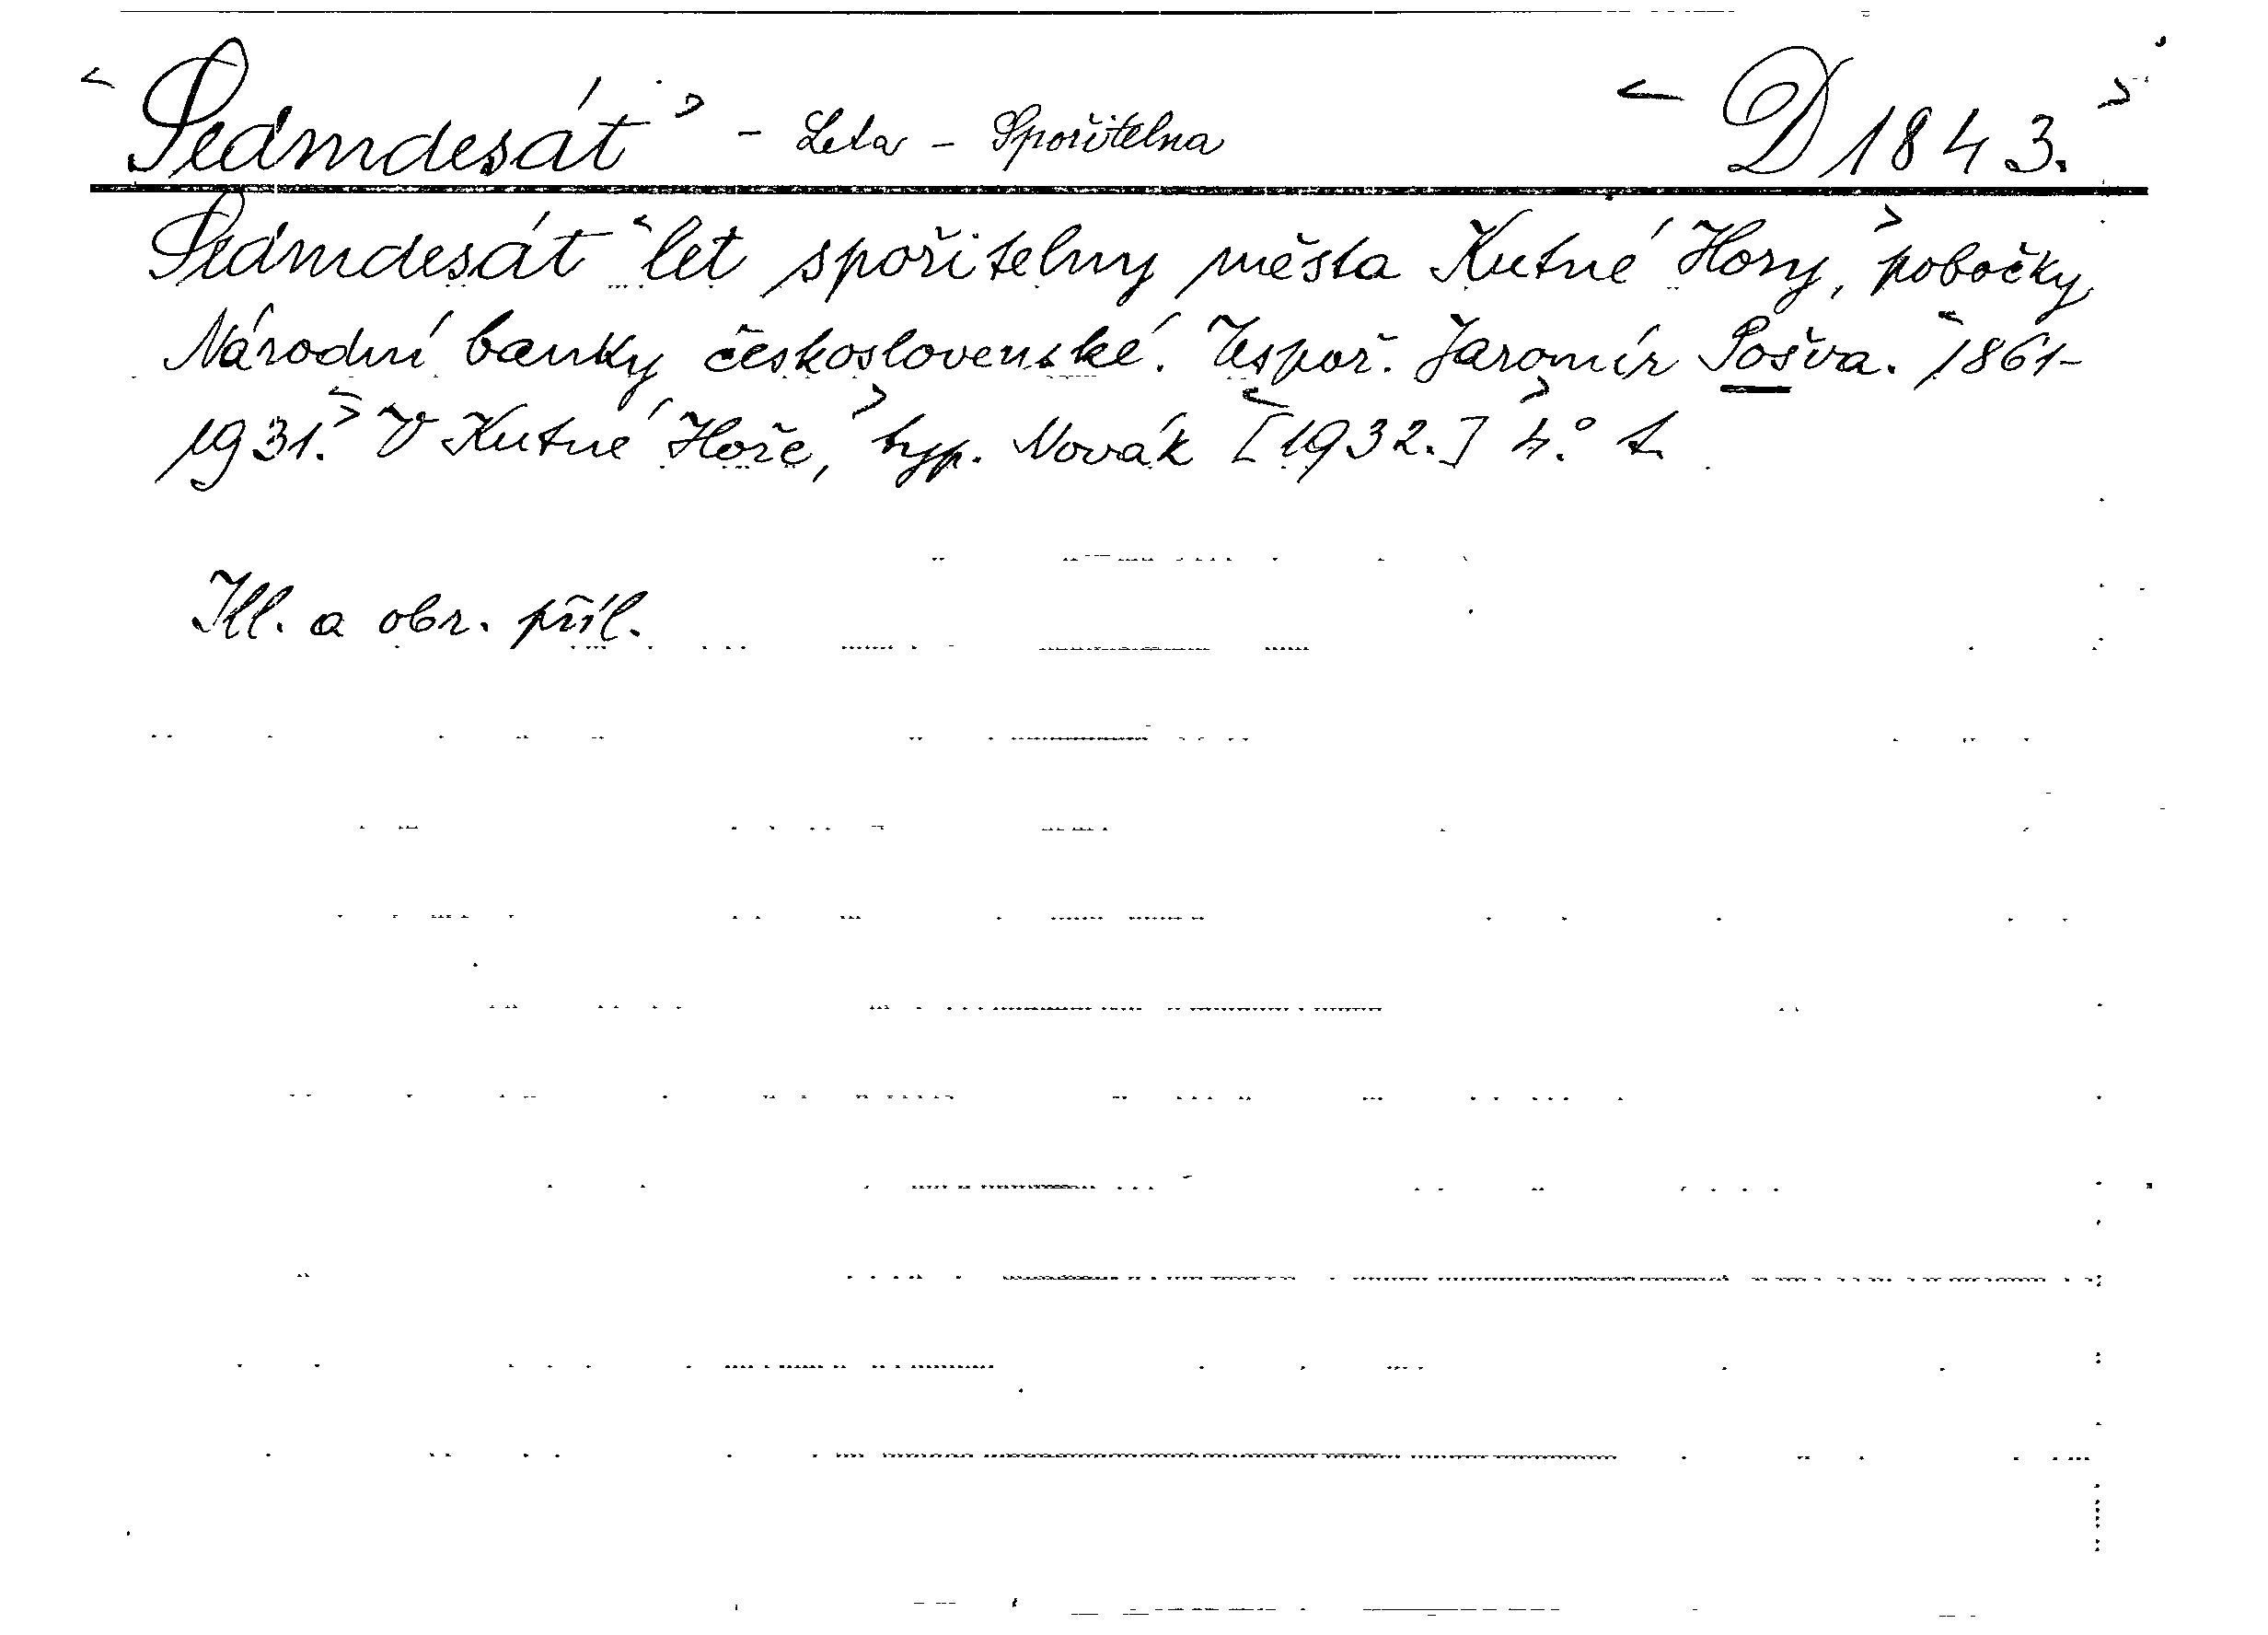 <Sedmdesát> - Leta - Spořitelna <D 1843.>
Sedmdesát <let spořitelny města Kutné Hory,> pobočky
Národní banky československé. Uspoř. Jaromír Pošva. <1861-
1931.> <V Kutné Hoře,> typ. Novák <[1932.]> 4.°
Ill. a obr. příl.